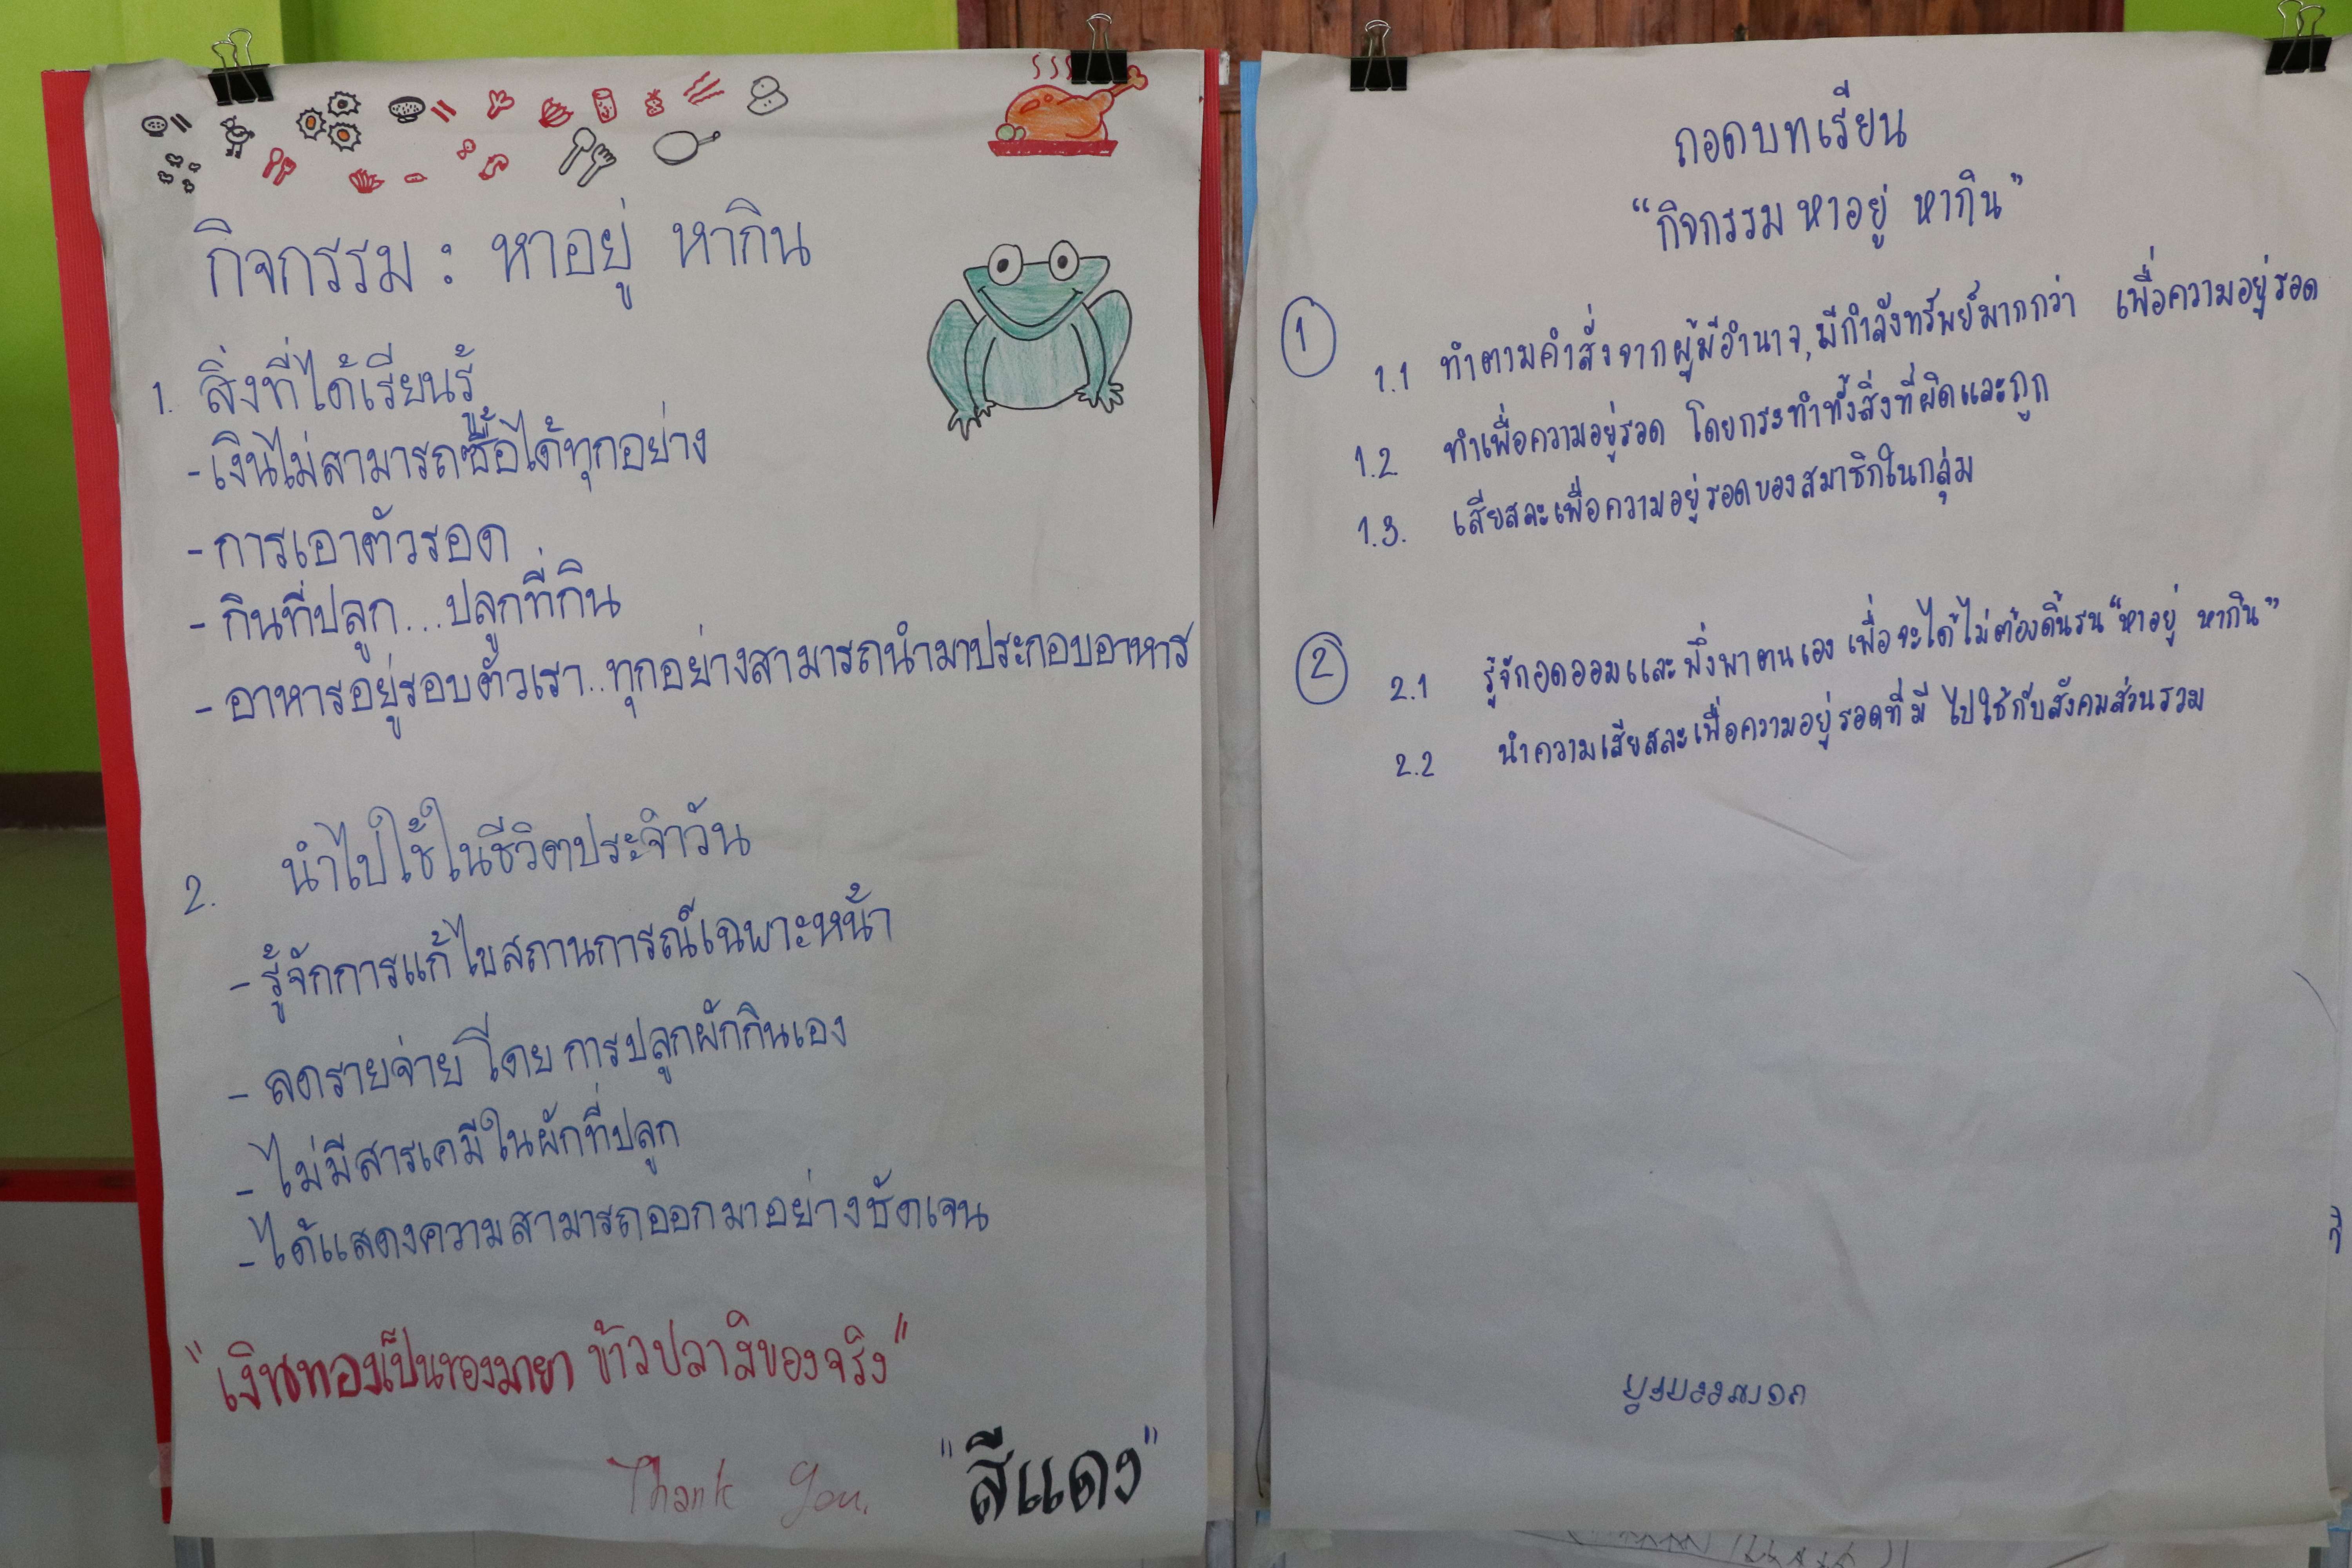 กิจกรรม : หาอยู่ หากิน
1. สิ่งที่ได้เรียนรู้
- เงินไม่สามารถซื้อได้ทุกอย่าง
- การเอาตัวรอด
- กินที่ปลูก...ปลูกที่กิน
- อาหารอยู่รอบตัวเรา..ทุกอย่างสามารถนำมาประกอบอาหาร
2. นำไปใช้ในชีวิตประจำวัน
- รู้จักการแก้ไขสถานการณ์เฉพาะหน้า
- ลดรายจ่าย โดย การปลูกผักกินเอง
- ไม่มีสารเคมีในผักที่ปลูก
- ได้แสดงความสามารถออกมาอย่างชัดเจน
"เงินทองเป็นของมายา ข้าวปลาสิของจริง"
Thank You.
"สีแดง"
ถอดบทเรียน
"กิจกรรม หาอยู่ หากิน"
1
1.1 ทำตามคำสั่งจากผู้มีอำนาจ, มีกำลังทรัพย์มากกว่า เพื่อความอยู่รอด
1.2 ทำเพื่อความอยู่รอด โดยกระทำทั้งสิ่งที่ผิดและถูก
1.3. เสียสละเพื่อความอยู่รอดของสมาชิกในกลุ่ม
2
2.1 รู้จักอดออมและพึ่งพาตนเอง เพื่อจะได้ไม่ต้องดิ้นรน "หาอยู่ หากิน"
2.2 นำความเสียสละเพื่อความอยู่รอดที่มี ไปใช้กับสังคมส่วนรวม